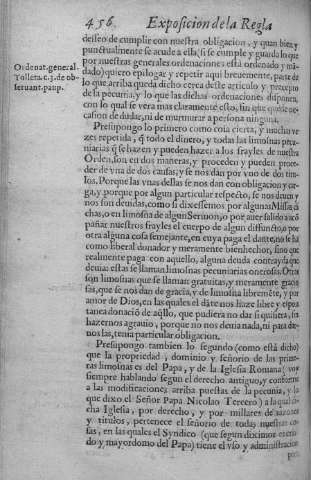 456. Exposicion de la Regla
deseo de cumplir con nuestra obligacion, y quan bien y
puntualmente se acude a ella (si se cumple y guarda lo que
por nuestras generales ordenaciones està ordenado y mã-
dado) quiero epilogar y repetir aqui breuemente, parte de
lo que arriba queda dicho cerca deste articulo y precepto
de la pecunia, y lo que las dichas ordenaciones disponen,
con lo qual se vera mas claramente esto, sin que quede oc-
casion de dudar, ni de murmurar a persona ninguna.
Presupongo lo primero como cosa cierta, y muchas ve
zes repetida, q̃ todo el dinero, y todas las limosnas pecu-
niarias q̃ se hazen y pueden hazer a los frayles de nuestra
Orden, son en dos maneras, y proceden y pueden proce-
der de vna de dos causas, y se nos dan por vno de dos titu-
los. Porque las vnas dellas se nos dan con obligacion y car-
ga, y porque por algun particular respecto, se nos deuen y
nos son deuidas, como si dixessemos por algunas Missas di
chas, o en limosna de algun Sermon, o por auer salido a acõ
pañar nuestros frayles el cuerpo de algun diffuncto, o por
otra alguna cosa semejante, en cuya paga el dante, no se ha
como liberal donador y meramente bienhechor, sino que
realmente paga con aquello, alguna deuda contrayda que
deuia: estas se llaman limosnas pecuniarias onerosas. Otras
son limosnas que se llaman gratuitas, y meramente gracio
sas, que se nos dan de gracia, y de limosna libremẽte, y por
amor de Dios, en las quales el dãte nos haze libre y espon
tanea donació de aq̃llo, que pudiera no dar si quisiera, sin
hazernos agrauio, porque no nos deuia nada, ni para dar-
nos las, tenia particular obligacion.
Presupongo tambien lo segundo (como està dicho)
que la propriedad, dominio y señorio de las prime-
ras limosnas es del Papa, y de la Iglesia Romana (voy
siempre hablando segun el derecho antiguo, y conforme
a las modificaciones arriba puestas de la pecunia, y la
que dixo el Señor Papa Nicolao Tercero) a la qual di-
cha Iglesia, por derecho, y por millares de razones
y titulos, pertenece el señorio de todas nuestras co-
sas, en las quales el Syndico (que segun diximos es cria-
do y mayordomo del Papa) tiene el vso y administracion
Ordenat. general.
Tolleta. c. 3. de ob-
seruant. paup.